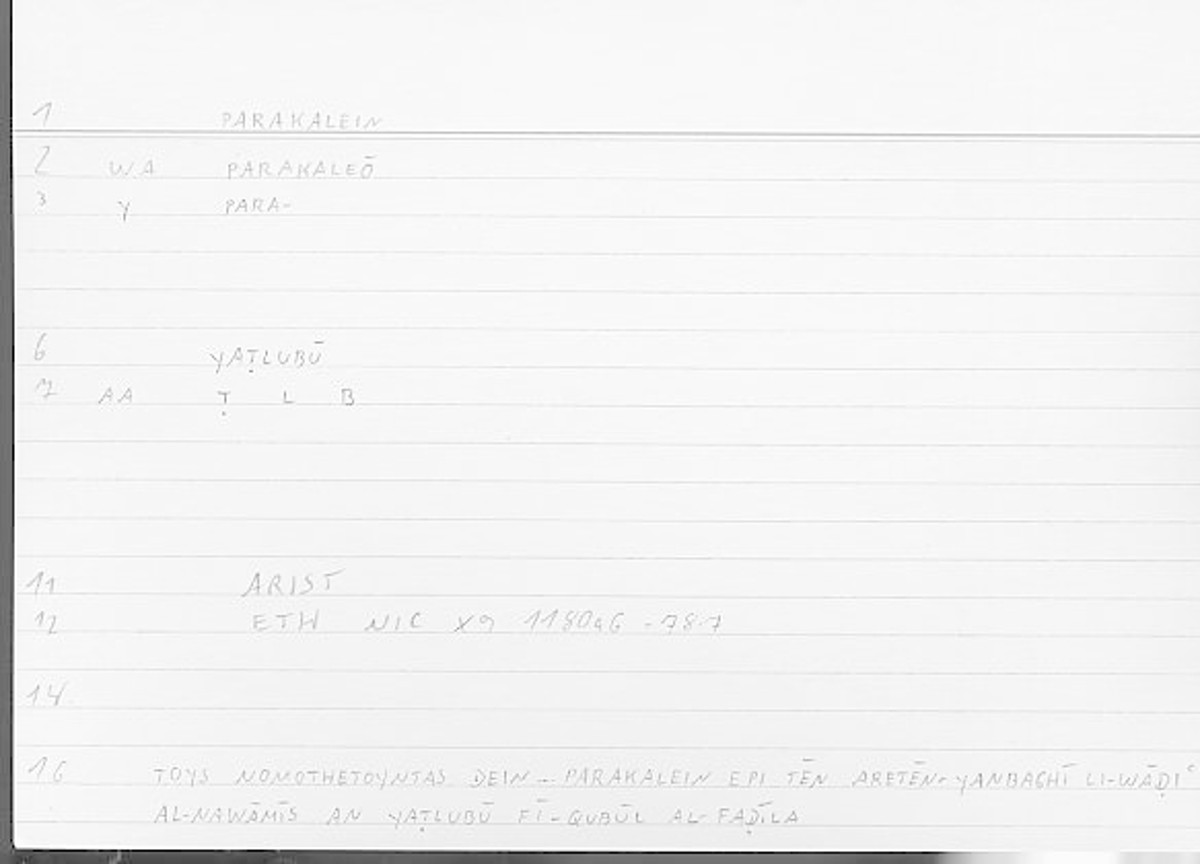 1 PARAKALEIN
2 WA PARAKALEŌ
3 Y PARA-
6 YAṬLUBŪ
7 AA Ṭ L B
11 ARIST
12 ETH NIC X9 1180a6-78.7
14.
16 TOYS NOMOTHETOYNTAS DEIN - PARAKALEIN EPI TĒN ARETĒN - YANBAGHĪ LI-WĀḌIʿ
AL-NAWĀMĪS AN YAṬLUBŪ FĪ-QUBŪL AL-FAḌĪLA